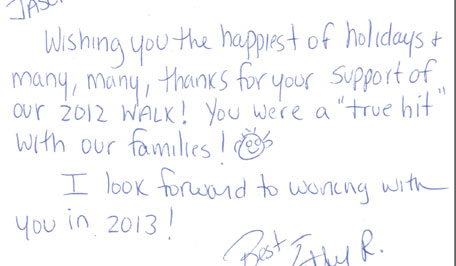 JASON
Wishing you the happiest of holidays +
many, many, thanks for your support of
our 2012 WALK! You were a "true hit"
with our families!
I look forward to working with
you in 2013!
Best R.